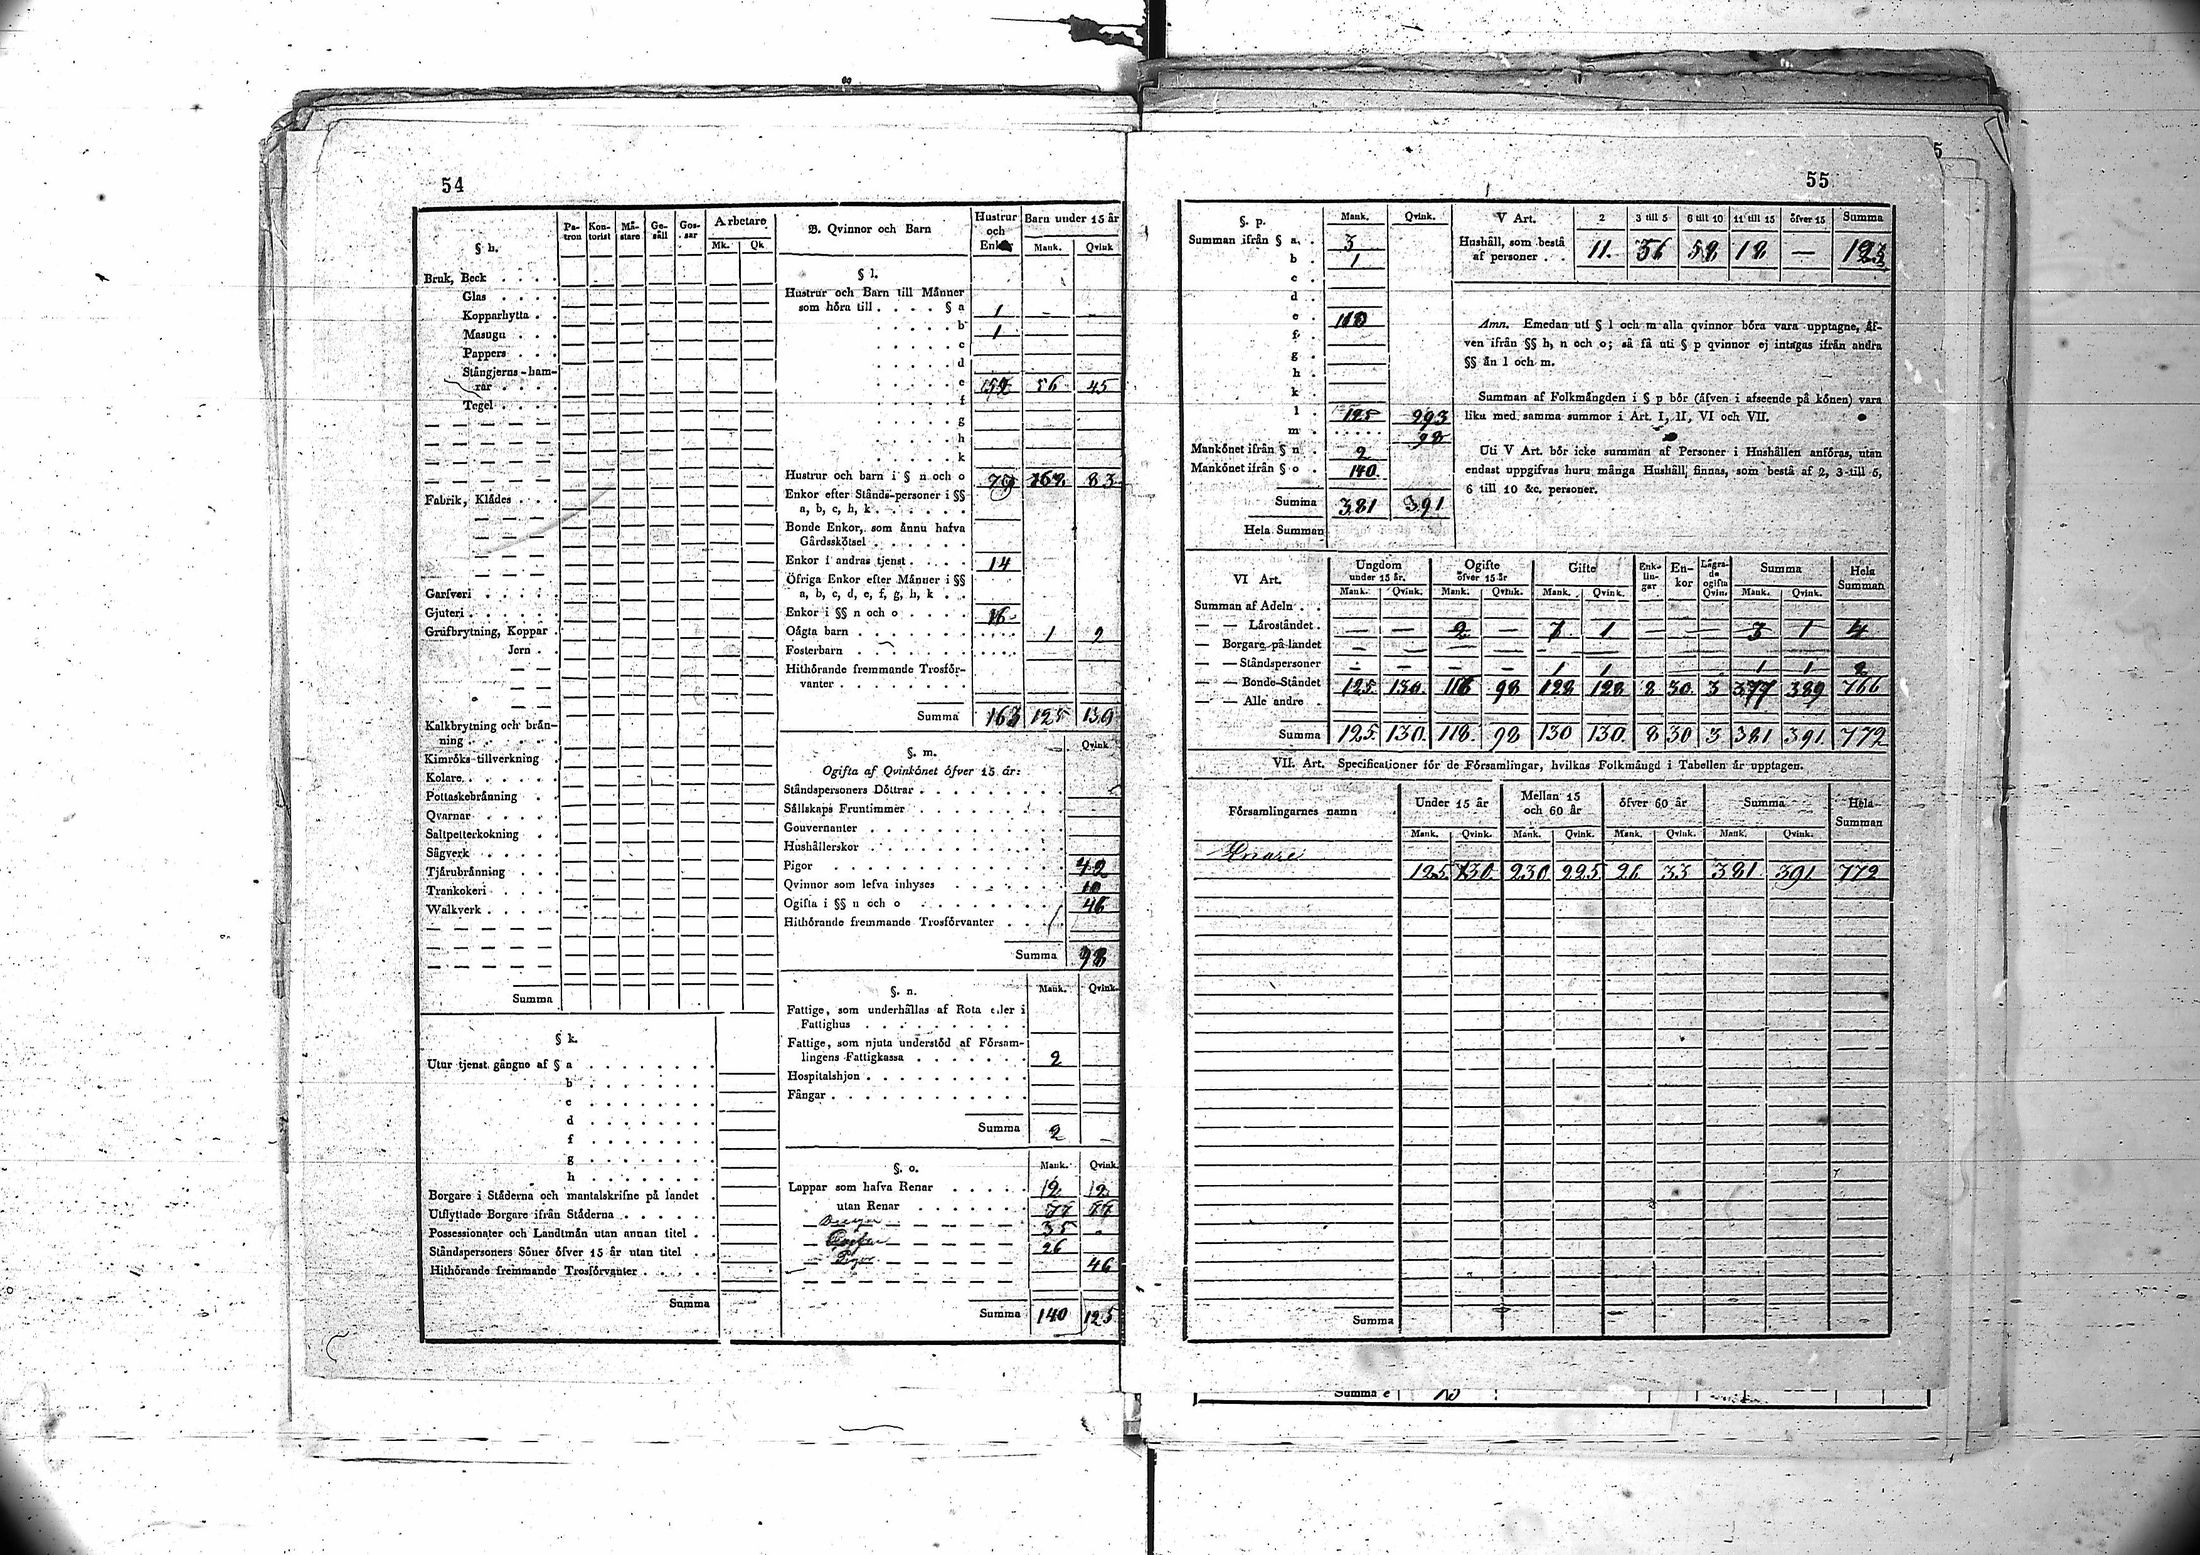 54
§ h.
Pa-tron Kon-torist Må-stare Ge-såll Gos-sar Arbetare
Mk. Qk
Bruk, Beck . . . .
Glas . . . .
Kopparhytta . .
Masugn . . .
Pappers . . .
Stångjerns-ham-
rar . . . .
Tegel . . . .
Fabrik, Klådes . . .
Garfveri . . . . .
Gjuteri . . . . . .
Grufbrytning, Koppar .
Jern . .
Kalkbrytning och brån-
ning . . . . . .
Kimröks-tillverkning .
Kolare . . . . . .
Pottaskebrånning . .
Qvarnar . . . . .
Saltpetterkokning . .
Sågverk . . . . .
Tjårubrånning . . .
Trankokeri . . . .
Walkverk . . . . .
Summa
§ k.
Utur tjenst gångne af § a . . . . . . .
b . . . . . . .
c . . . . . . .
d . . . . . . .
f . . . . . . .
g . . . . . . .
h . . . . . . .
Borgare i Ståderna och mantalskrifne på landet .
Utflyttade Borgare ifrån Ståderna . . . . .
Possessionater och Landtmån utan annan titel . .
Ståndspersoners Söner öfver 15 år utan titel . .
Hithörande fremmande Trosförvanter . . . . .
Summa
B. Qvinnor och Barn
Hustrur och Enkor Barn under 15 år
Mank. Qvink
§ l.
Hustrur och Barn till Männer
som höra till . . . . § a 1 — —
. . . . . b 1
. . . . . c
. . . . . d
. . . . . e 152 56 45
. . . . . f
. . . . . g
. . . . . h
. . . . . k
Hustrur och barn i § n och o 79 83
Enkor efter Stånds-personer i §§
a, b, c, h, k . . . . . .
Bonde Enkor, som ännu hafva
Gårdsskötsel . . . . . .
Enkor i andras tjenst . . . . 14
Öfriga Enkor efter Männer i §§
a, b, c, d, e, f, g, h, k . .
Enkor i §§ n och o . . . . 16
Oägta barn . . . . . . . 1 2
Fosterbarn . . . . . . .
Hithörande fremmande Trosför-
vanter . . . . . . . .
Summa 163 125 130
§. m.
Qvink
Ogifta af Qvinkönet öfver 15 år:
Ståndspersoners Döttrar . . . . . . . . .
Sällskaps Fruntimmer . . . . . . . . .
Gouvernanter . . . . . . . . . . .
Hushållerskor . . . . . . . . . . .
Pigor . . . . . . . . . . . . . 42
Qvinnor som lefva inhyses . . . . . . 10
Ogifta i §§ n och o . . . . . . . . 46
Hithörande fremmande Trosförvanter . . . .
Summa 98
§. n.
Mank. Qvink.
Fattige, som underhållas af Rota eller i
Fattighus . . . . . . . . . .
Fattige, som njuta understöd af Försam-
lingens Fattigkassa . . . . . . . 2
Hospitalshjon . . . . . . . . . .
Fångar . . . . . . . . . . . .
Summa 2 —
§. o.
Mank. Qvink.
Lappar som hafva Renar . . . . . 12 12
utan Renar . . . . . . 77 77
35
26
46
Summa 140 125
55
§. p.
Mank. Qvink.
Summan ifrån § a. . 3
b . 1
c .
d .
e . 110
f .
g .
h .
k .
l . 125 293
m . . . . . . 98
Mankönet ifrån § n . 2
Mankönet ifrån § o . 140
Summa 381 391
Hela Summan
V Art. 2 3 till 5 6 till 10 11 till 15 öfver 15 Summa
Hushåll, som bestå
af personer . . 11. 36 58 18 — 123
Amn. Emedan uti § l och m alla qvinnor böra vara upptagne, äf-
ven ifrån §§ h, n och o; så få uti § p qvinnor ej intagas ifrån andra
§§ än l och m.
Summan af Folkmängden i § p bör (äfven i afseende på könen) vara
lika med samma summor i Art. I, II, VI och VII.
Uti V Art. bör icke summan af Personer i Hushållen anföras, utan
endast uppgifvas huru många Hushåll, finnas, som bestå af 2, 3 till 5,
6 till 10 &c. personer.
VI Art.
Ungdom under 15 år. Ogifte öfver 15 år Gifte Enk-lin-gar En-kor Lägra-de ogifta Qvin. Summa Hela Summan
Mank. Qvink. Mank. Qvink. Mank. Qvink. Mank. Qvink.
Summan af Adeln . .
— — Läroståndet . — — 2 — 1 1 — — 3 1 4
— Borgare på landet
— — Ståndspersoner — — — — 1 1 1 1 2
— — Bonde-Ståndet 125 130. 116 98 128 128 8 30. 3 377 389 766
— — Alle andre .
Summa 125. 130. 118. 98 130 130. 8 30 3 381 391. 772
VII. Art. Specificationer för de Församlingar, hvilkas Folkmängd i Tabellen är upptagen.
Församlingarnes namn Under 15 år Mellan 15 och 60 år öfver 60 år Summa Hela Summan
Mank. Qvink. Mank. Qvink. Mank. Qvink. Mank. Qvink.
125. 130. 230 225. 26 33 381 391. 772
Summa
Summa e 10